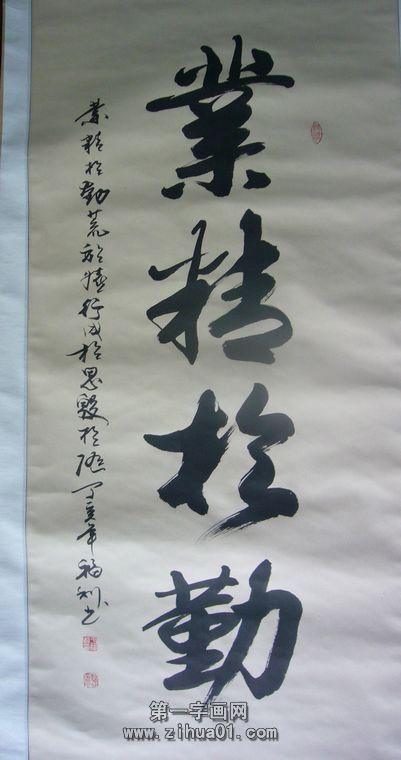 業精於勤
業精於勤荒於嬉行成於思毀於隨丁亥年福利书
第一字画网
www.zihua01.com